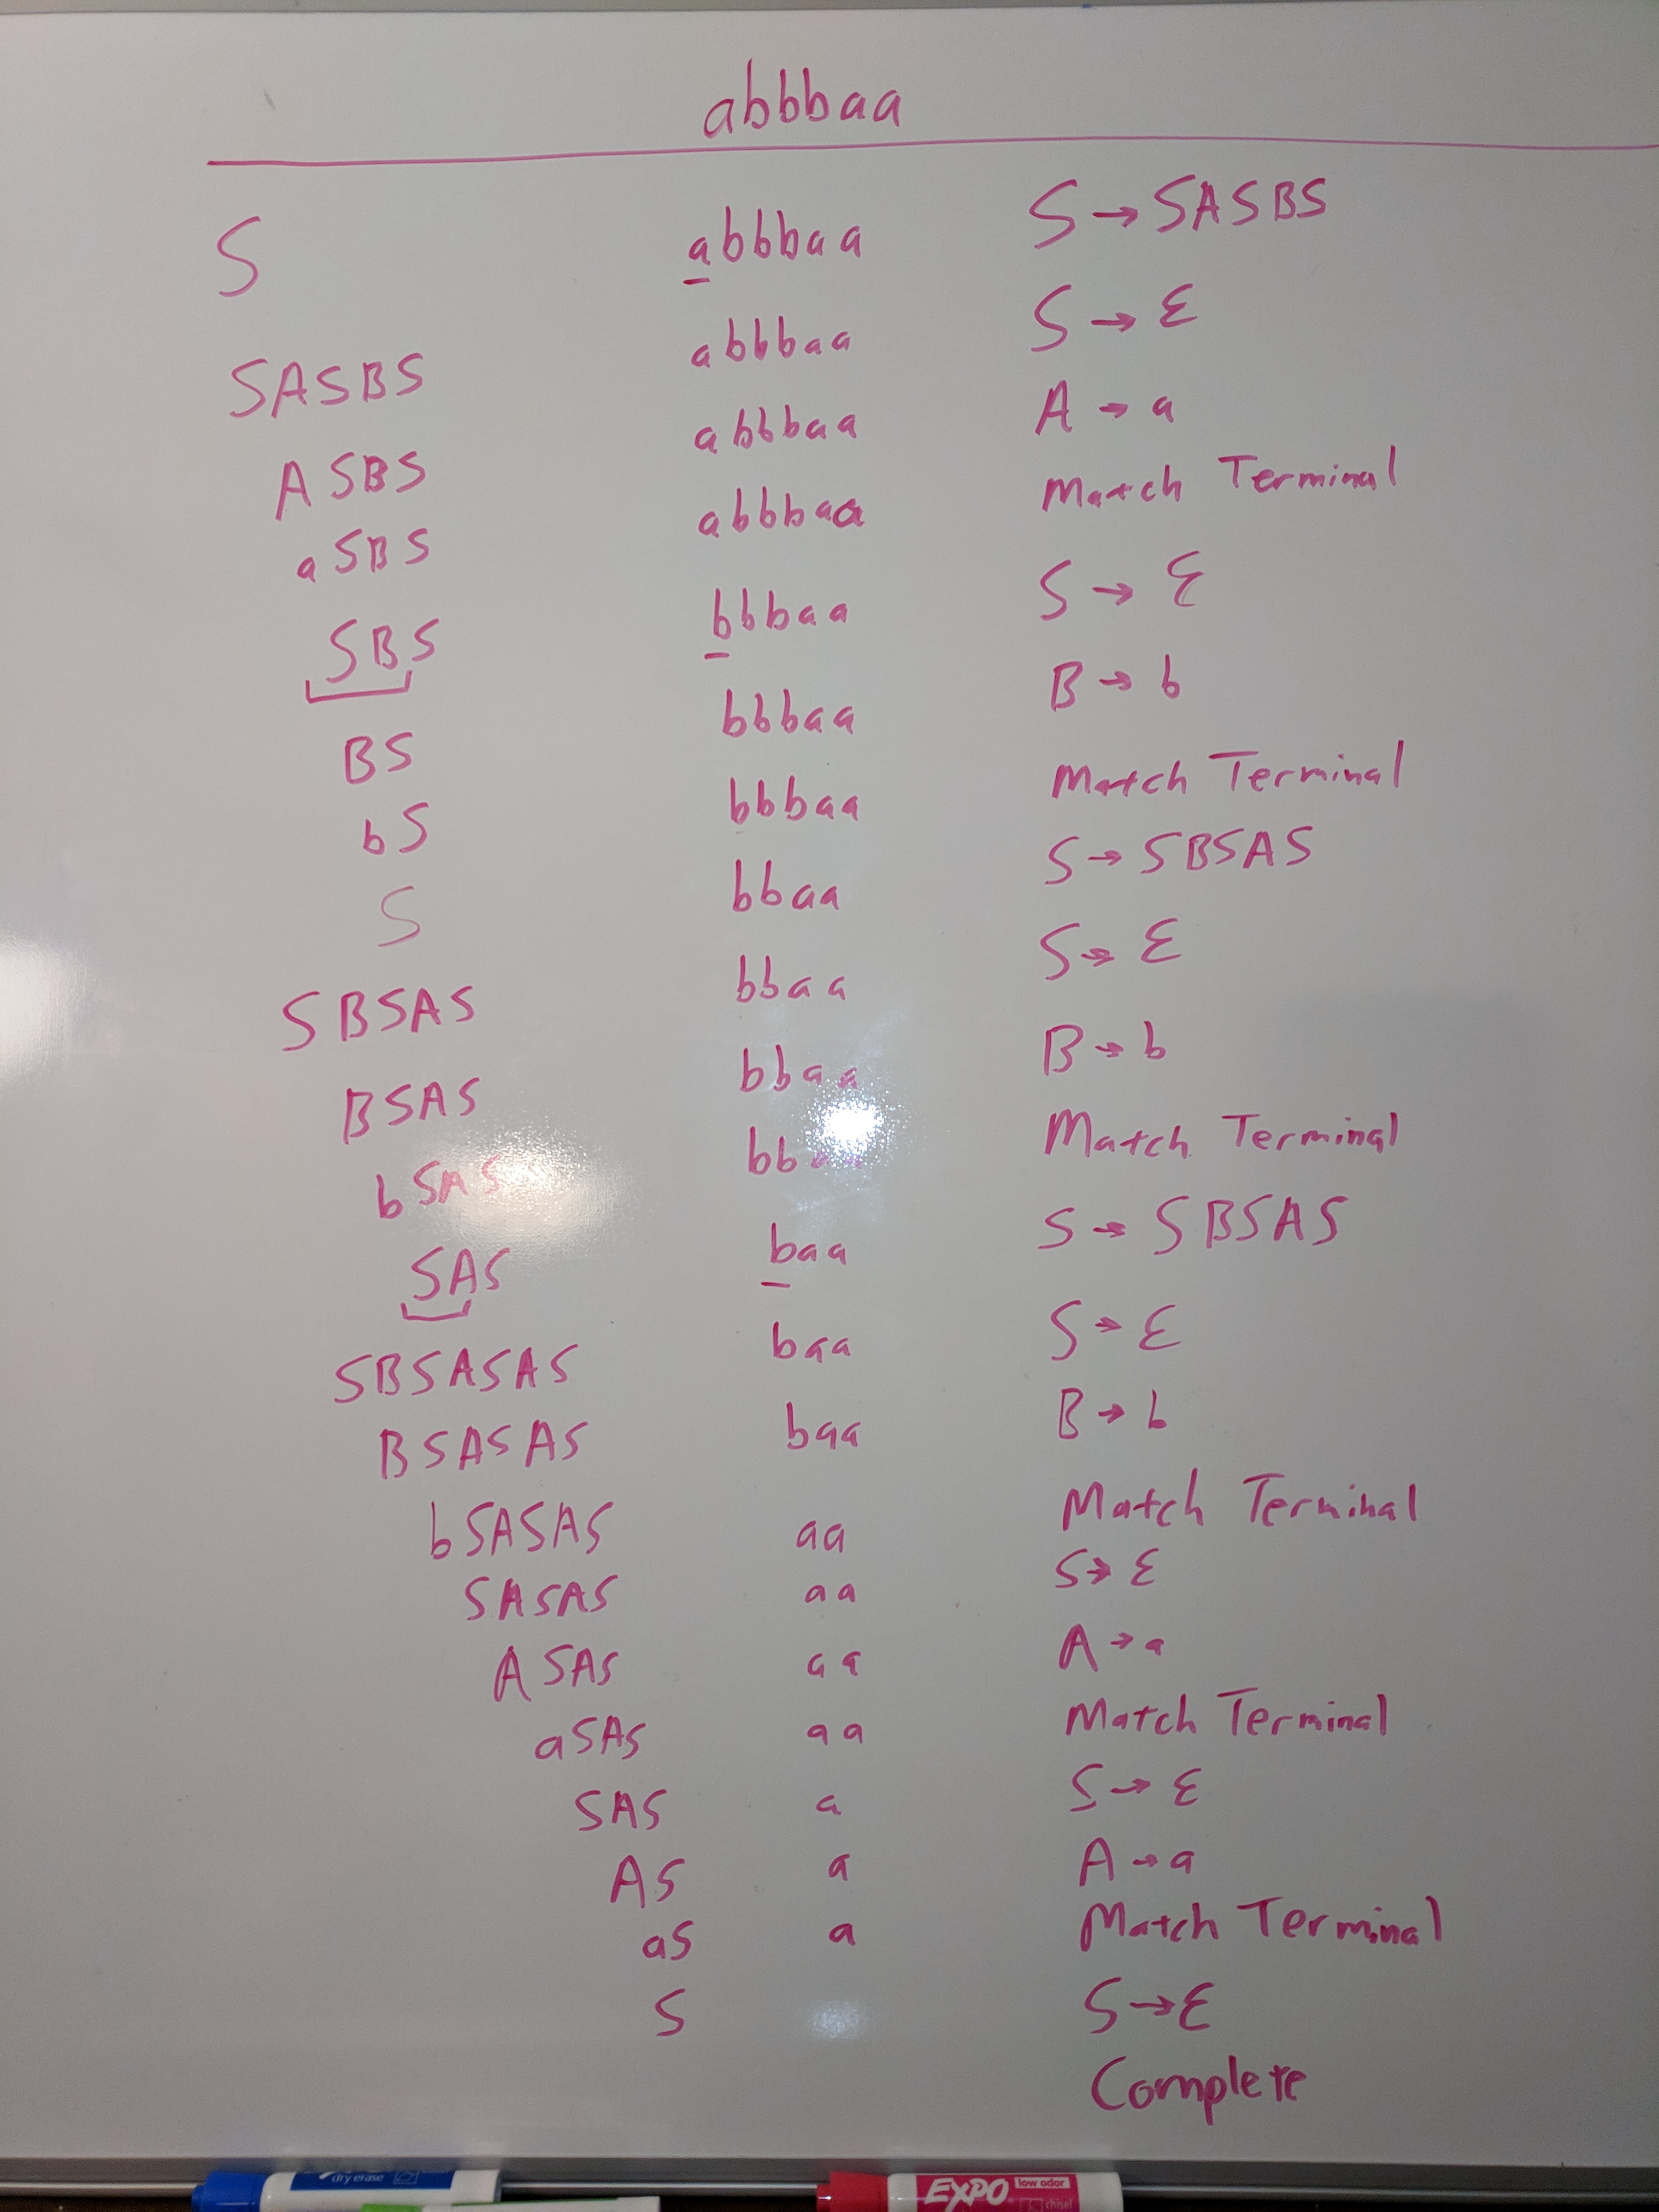 abbbaa
S abbbaa S → SASBS
SASBS abbbaa S → ε
ASBS abbbaa A → a
aSBS abbbaa Match Terminal
SBS bbbaa S → ε
BS bbbaa B → b
bS bbbaa Match Terminal
S bbaa S → SBSAS
SBSAS bbaa S → ε
BSAS bbaa B → b
bSAS bbaa Match Terminal
SAS baa S → SBSAS
SBSASAS baa S → ε
BSASAS baa B → b
bSASAS aa Match Terminal
SASAS aa S → ε
ASAS aa A → a
aSAS aa Match Terminal
SAS a S → ε
AS a A → a
aS a Match Terminal
S S → ε
Complete
dry erase
EXPO low odor
chisel